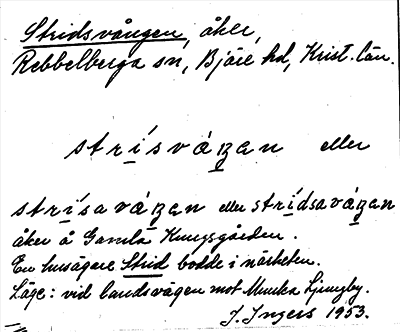 Stridsvången, åker,
Rebbelberga sn, Bjäre hd, Krist. län.
strísváŋan eller
strísaváŋan eller strídsaváŋan
åker å Gamla Kungsgården.
En husägare Strid bodde i närheten.
Läge: vid landsvägen mot Munka Ljungby.
J. Ingers 1953.